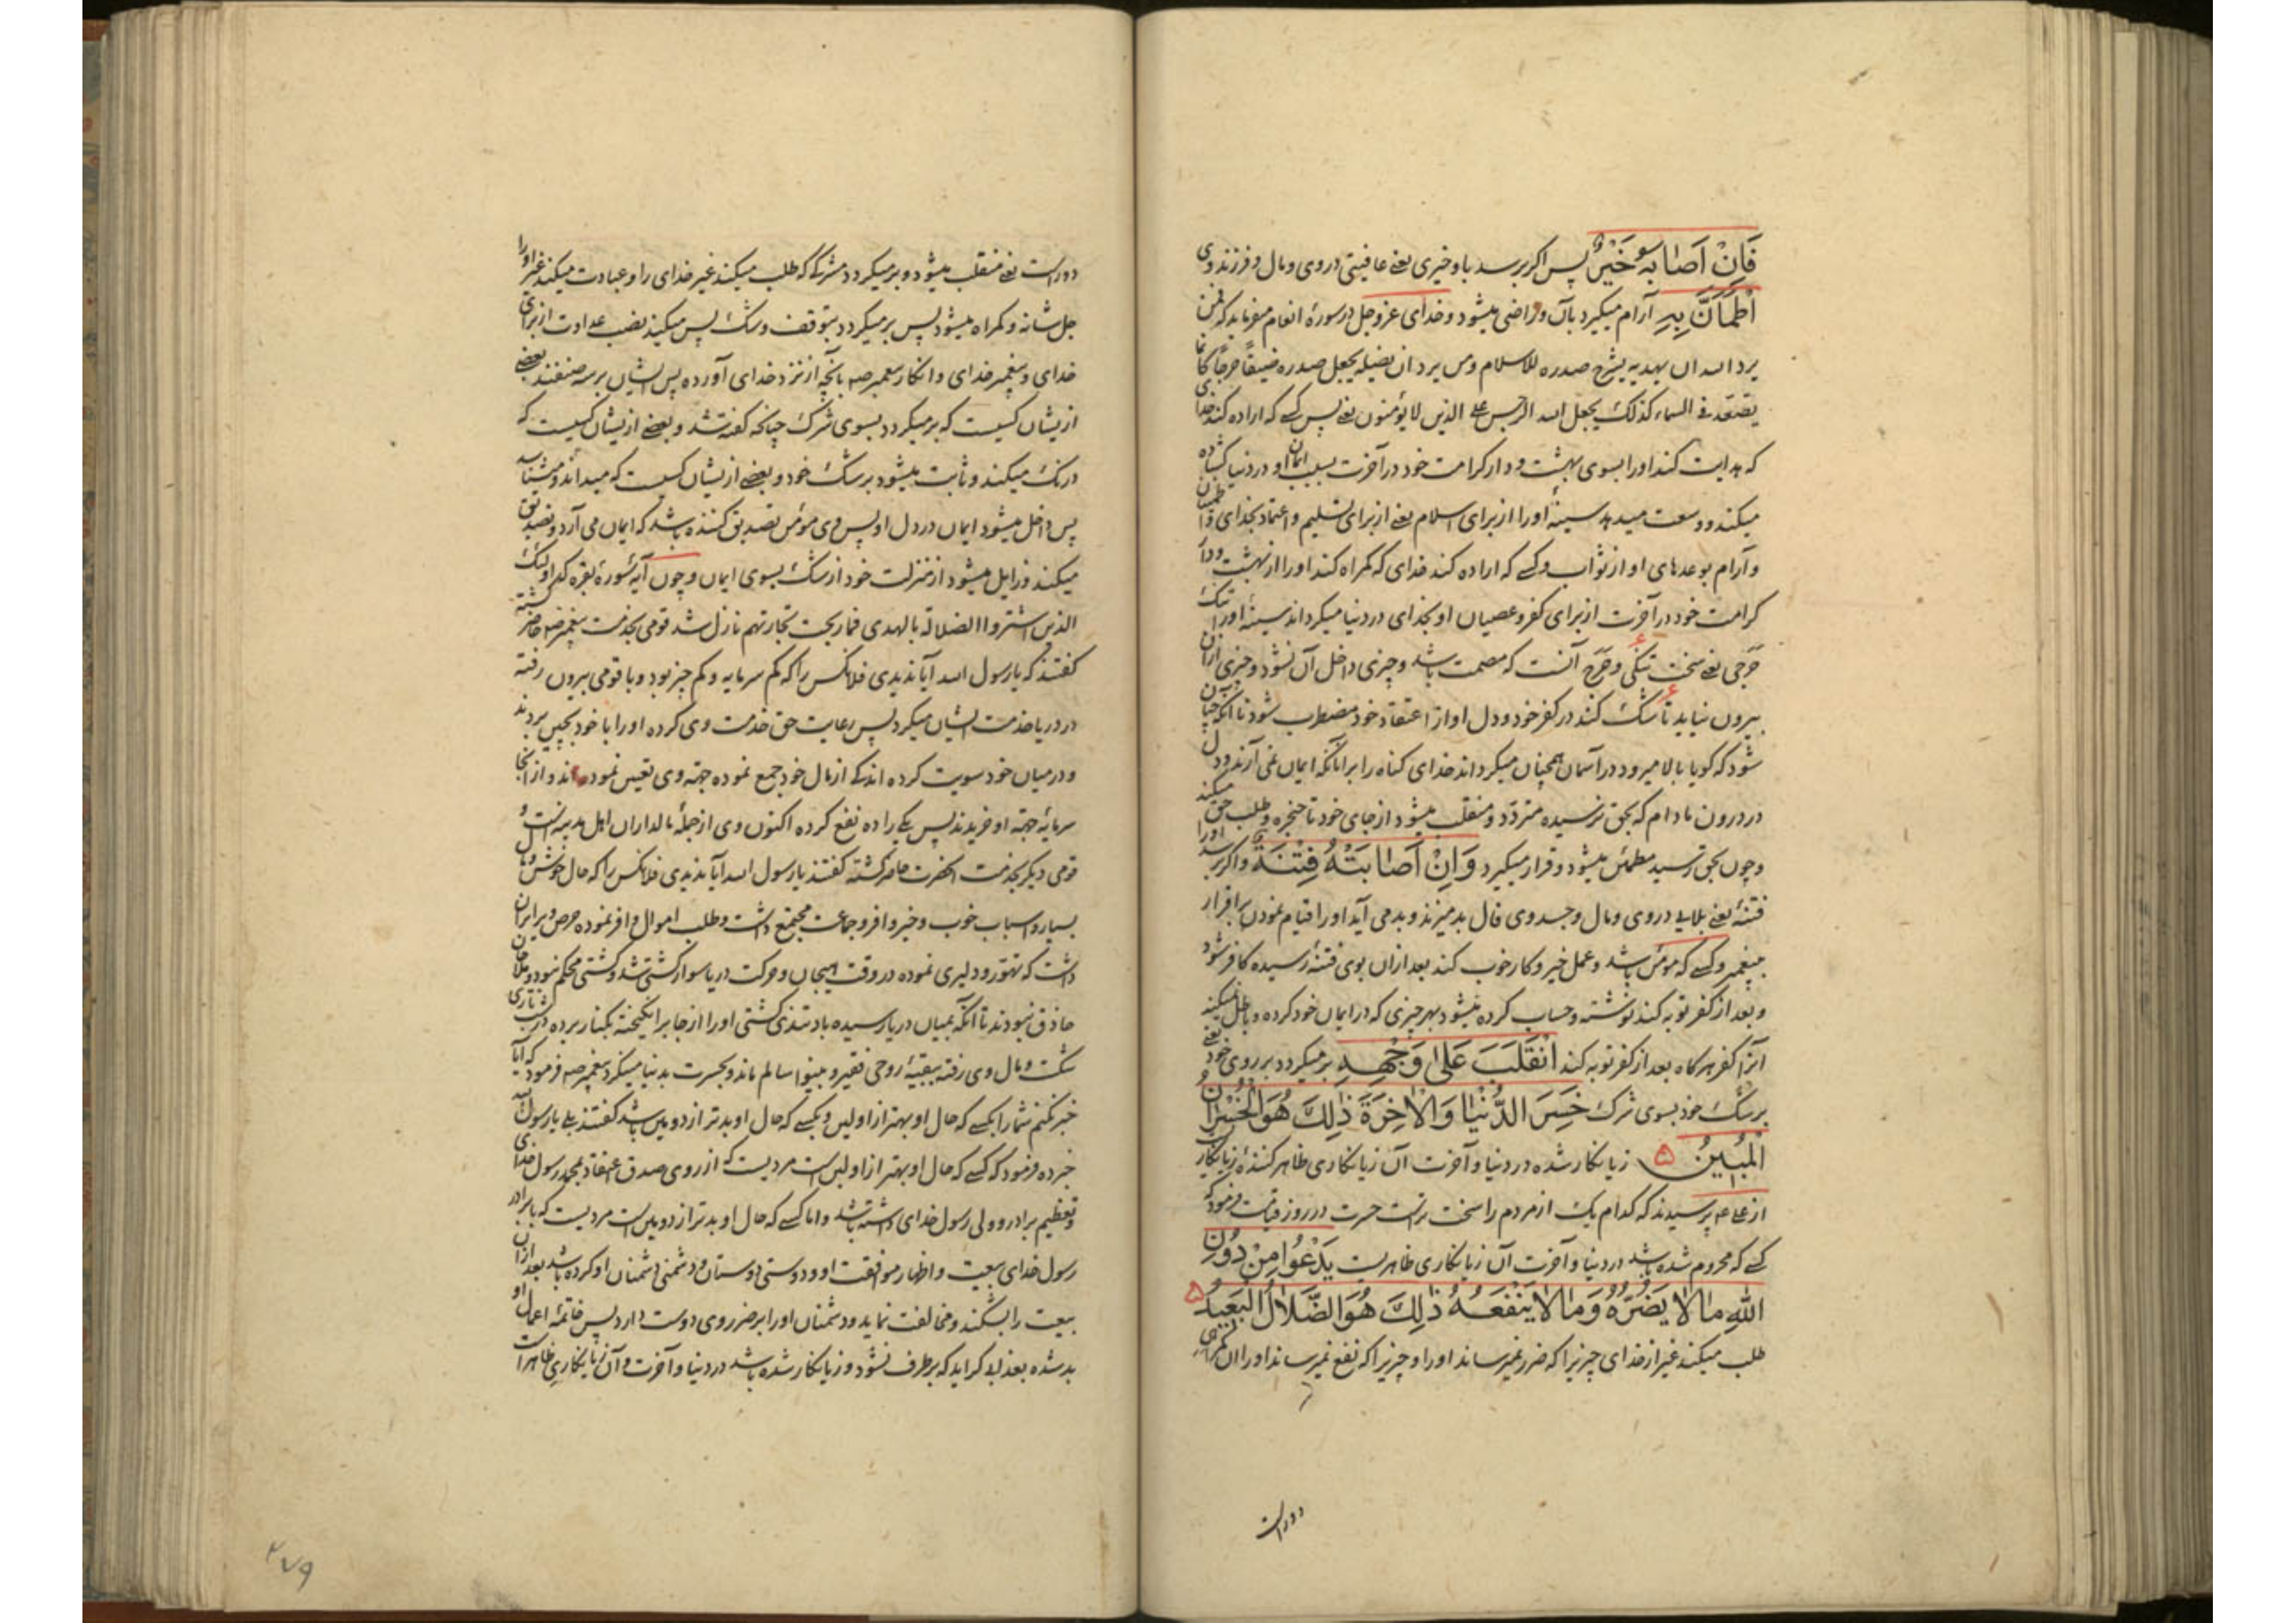 فَاِنْ اَصَابَهُ خَیْرٌ پس اگر برسد باو خیری یعنی عافیتی در وی و مال و فرزند وی
اِطْمَأَنَّ بِهِ آرام میگیرد بآن و راضی میشود و خدای عزوجل در سورهٔ انعام میفرماید که فمن
یرد الله ان یهدیه یشرح صدره للاسلام ومن یرد ان یضله یجعل صدره ضیقاً حرجاً کانما
یصّعّد فی السماء کذلک یجعل الله الرجس علی الذین لا یؤمنون یعنی پس کسی که اراده کند خدای
که هدایت کند او را بسوی بهشت و دار کرامت خود در آخرت بسبب ایمان او در دنیا کشاده
میکند و وسعت میدهد سینهٔ او را از برای اسلام یعنی از برای تسلیم و اعتماد بخدای و اطمینان
و آرام بوعدهای او از ثواب و کسی که اراده کند خدای که گمراه کند او را از بهشت و دار
کرامت خود در آخرت از برای کفر و عصیان او بخدای در دنیا میگرداند سینهٔ او را تنگ
حرجی یعنی سخت تنگی و حرج آنست که مصمت باشد و چیزی داخل آن نشود و چیزی ازان
بیرون نیاید تا شک کند در کفر خود و دل او از اعتقاد خود مضطرب شود تا آنکه چنان
شود که گویا بالا میرود در آسمان همچنان میگرداند خدای گناه را بر آنانکه ایمان نمی آرند و دل
در درون مادام که بحق نرسیده متردد و منقلب میشود از جای خود تا حنجره و طلب حق میکند
و چون بحق رسید مطمئن میشود و قرار میگیرد وَاِنْ اَصَابَتْهُ فِتْنَةٌ و اگر برسد او را
فتنهٔ یعنی بلایی در وی و مال و جسد وی فال بد میزند و بد می آید او را قیام نمودن باقرار
پیغمبر و کسی که مؤمن باشد و عمل خیر و کار خوب کند بعد ازان بوی فتنهٔ رسیده کافر شود
و بعد از کفر توبه کند نوشته و حساب کرده میشود بهر چیزی که در ایمان خود کرده و باطل نمیکند
آنرا کفر هرگاه بعد از کفر توبه کند اِنْقَلَبَ عَلٰی وَجْهِهِ بر میگردد بر روی خود یعنی
بر شک خود بسوی شرک خَسِرَ الدُّنْیَا وَالْاٰخِرَةَ ذٰلِكَ هُوَ الْخُسْرَانُ
الْمُبِیْنُ زیانکار شده در دنیا و آخرت آن زیانکاری ظاهر کنندهٔ زیانکار
از علی ع پرسیدند که کدام یک از مردم را سخت تر است حسرت در روز قیامت فرمود که
کسی که محروم شده باشد در دنیا و آخرت آن زیانکاری ظاهریست یَدْعُوا مِنْ دُوْنِ
اللهِ مَا لَا یَضُرُّهُ وَمَا لَا یَنْفَعُهُ ذٰلِكَ هُوَ الضَّلَالُ الْبَعِیْدُ
طلب میکند غیر از خدای چیزیرا که ضرر نمیرساند او را و چیزیرا که نفع نمیرساند او را آن گمراهی
دور است
دور است یعنی منقلب میشود و بر میگردد مشرکی که طلب میکند غیر خدای را و عبادت میکند غیر او را
جل شانه و گمراه میشود پس بر میگردد بتوقف و شک پس میکند نصب عداوت از برای
خدای و پیغمبر خدای و انکار پیغمبر صه بآنچه از نزد خدای آورده پس ایشان بر سه صنفند بعضی
ازیشان کسیست که بر میگردد بسوی شرک چنانکه گفته شد و بعضی ازیشان کسیست که
درنگ میکند و ثابت میشود بر شک خود و بعضی ازیشان کسیست که میداند و میشناسد
پس داخل میشود ایمان در دل او پس وی مؤمن تصدیق کننده باشد که ایمان می آرد و تصدیق
میکند و زایل میشود از منزلت خود از شک بسوی ایمان و چون آیهٔ سورهٔ بقره که اولئک
الذین اشتروا الضلالة بالهدی فما ربحت تجارتهم نازل شد قومی بخدمت پیغمبر صه حاضر گشته
گفتند که یا رسول الله آیا ندیدی فلانکس را که کم سرمایه و کم چیز بود و با قومی بیرون رفته
در دریا خدمت ایشان میکرد پس رعایت حق خدمت وی کرده او را با خود بچین بردند
و در میان خود سویت کرده اندکی از مال خود جمع نموده جهة وی تعیین نموده اند و از آنجا
سرمایه جهة او خریدند پس یکی را ده نفع کرده اکنون وی از جملهٔ مالداران اهل مدینه است و
قومی دیگر بخدمت آنحضرت حاضر گشته گفتند یا رسول الله آیا ندیدی فلانکس را که حال خوش و مال
بسیار و اسباب خوب و خیر وافر و جماعت مجتمع داشت و طلب اموال وافر نموده حرص ویرا بران
داشت که تهوّر و دلیری نموده در وقت هیجان و حرکت دریا سوار کشتی شد و کشتی محکم نبود و ملاحان
حاذق نبودند تا آنکه بمیان دریا رسیده باد تندی کشتی او را از جا برانگیخته بکنار برده در شب تاری
شکست و مال وی رفته ببقیهٔ روحی فقیر و بینوا سالم ماند و بحسرت بدنیا میگرد پیغمبر صه فرمود که آیا
خبر نکنم شما را بکسی که حال او بهتر از اولین و بکسی که حال او بدتر از دومین باشد گفتند بلی یا رسول الله
خبر ده فرمود که کسی که حال او بهتر از اولین است مردیست که از روی صدق اعتقاد بمحمد رسول خدای
و تعظیم برادر و ولی رسول خدای داشته باشد و اما کسی که حال او بدتر از دومین است مردیست که با برادر
رسول خدای بیعت و اظهار موافقت او و دوستی دوستان و دشمنی دشمنان او کرده باشد بعد ازان
بیعت را بشکند و مخالفت نماید و دشمنان او را بر ضرر وی دوست دارد پس خاتمهٔ اعمال او
بد شده بعذاب گراید که بر طرف نشود و زیانکار شده باشد در دنیا و آخرت و آن زیانکاری ظاهر است
۲۷۹